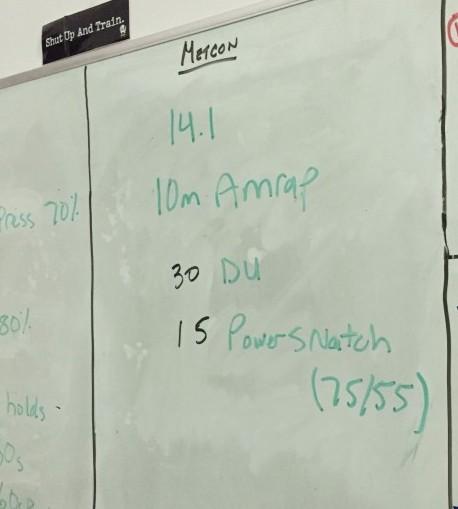 Shut Up And Train.
METCON
14.1
10m Amrap
30 DU
15 Power SNatch
(75/55)
Press 70%
80%
holds -